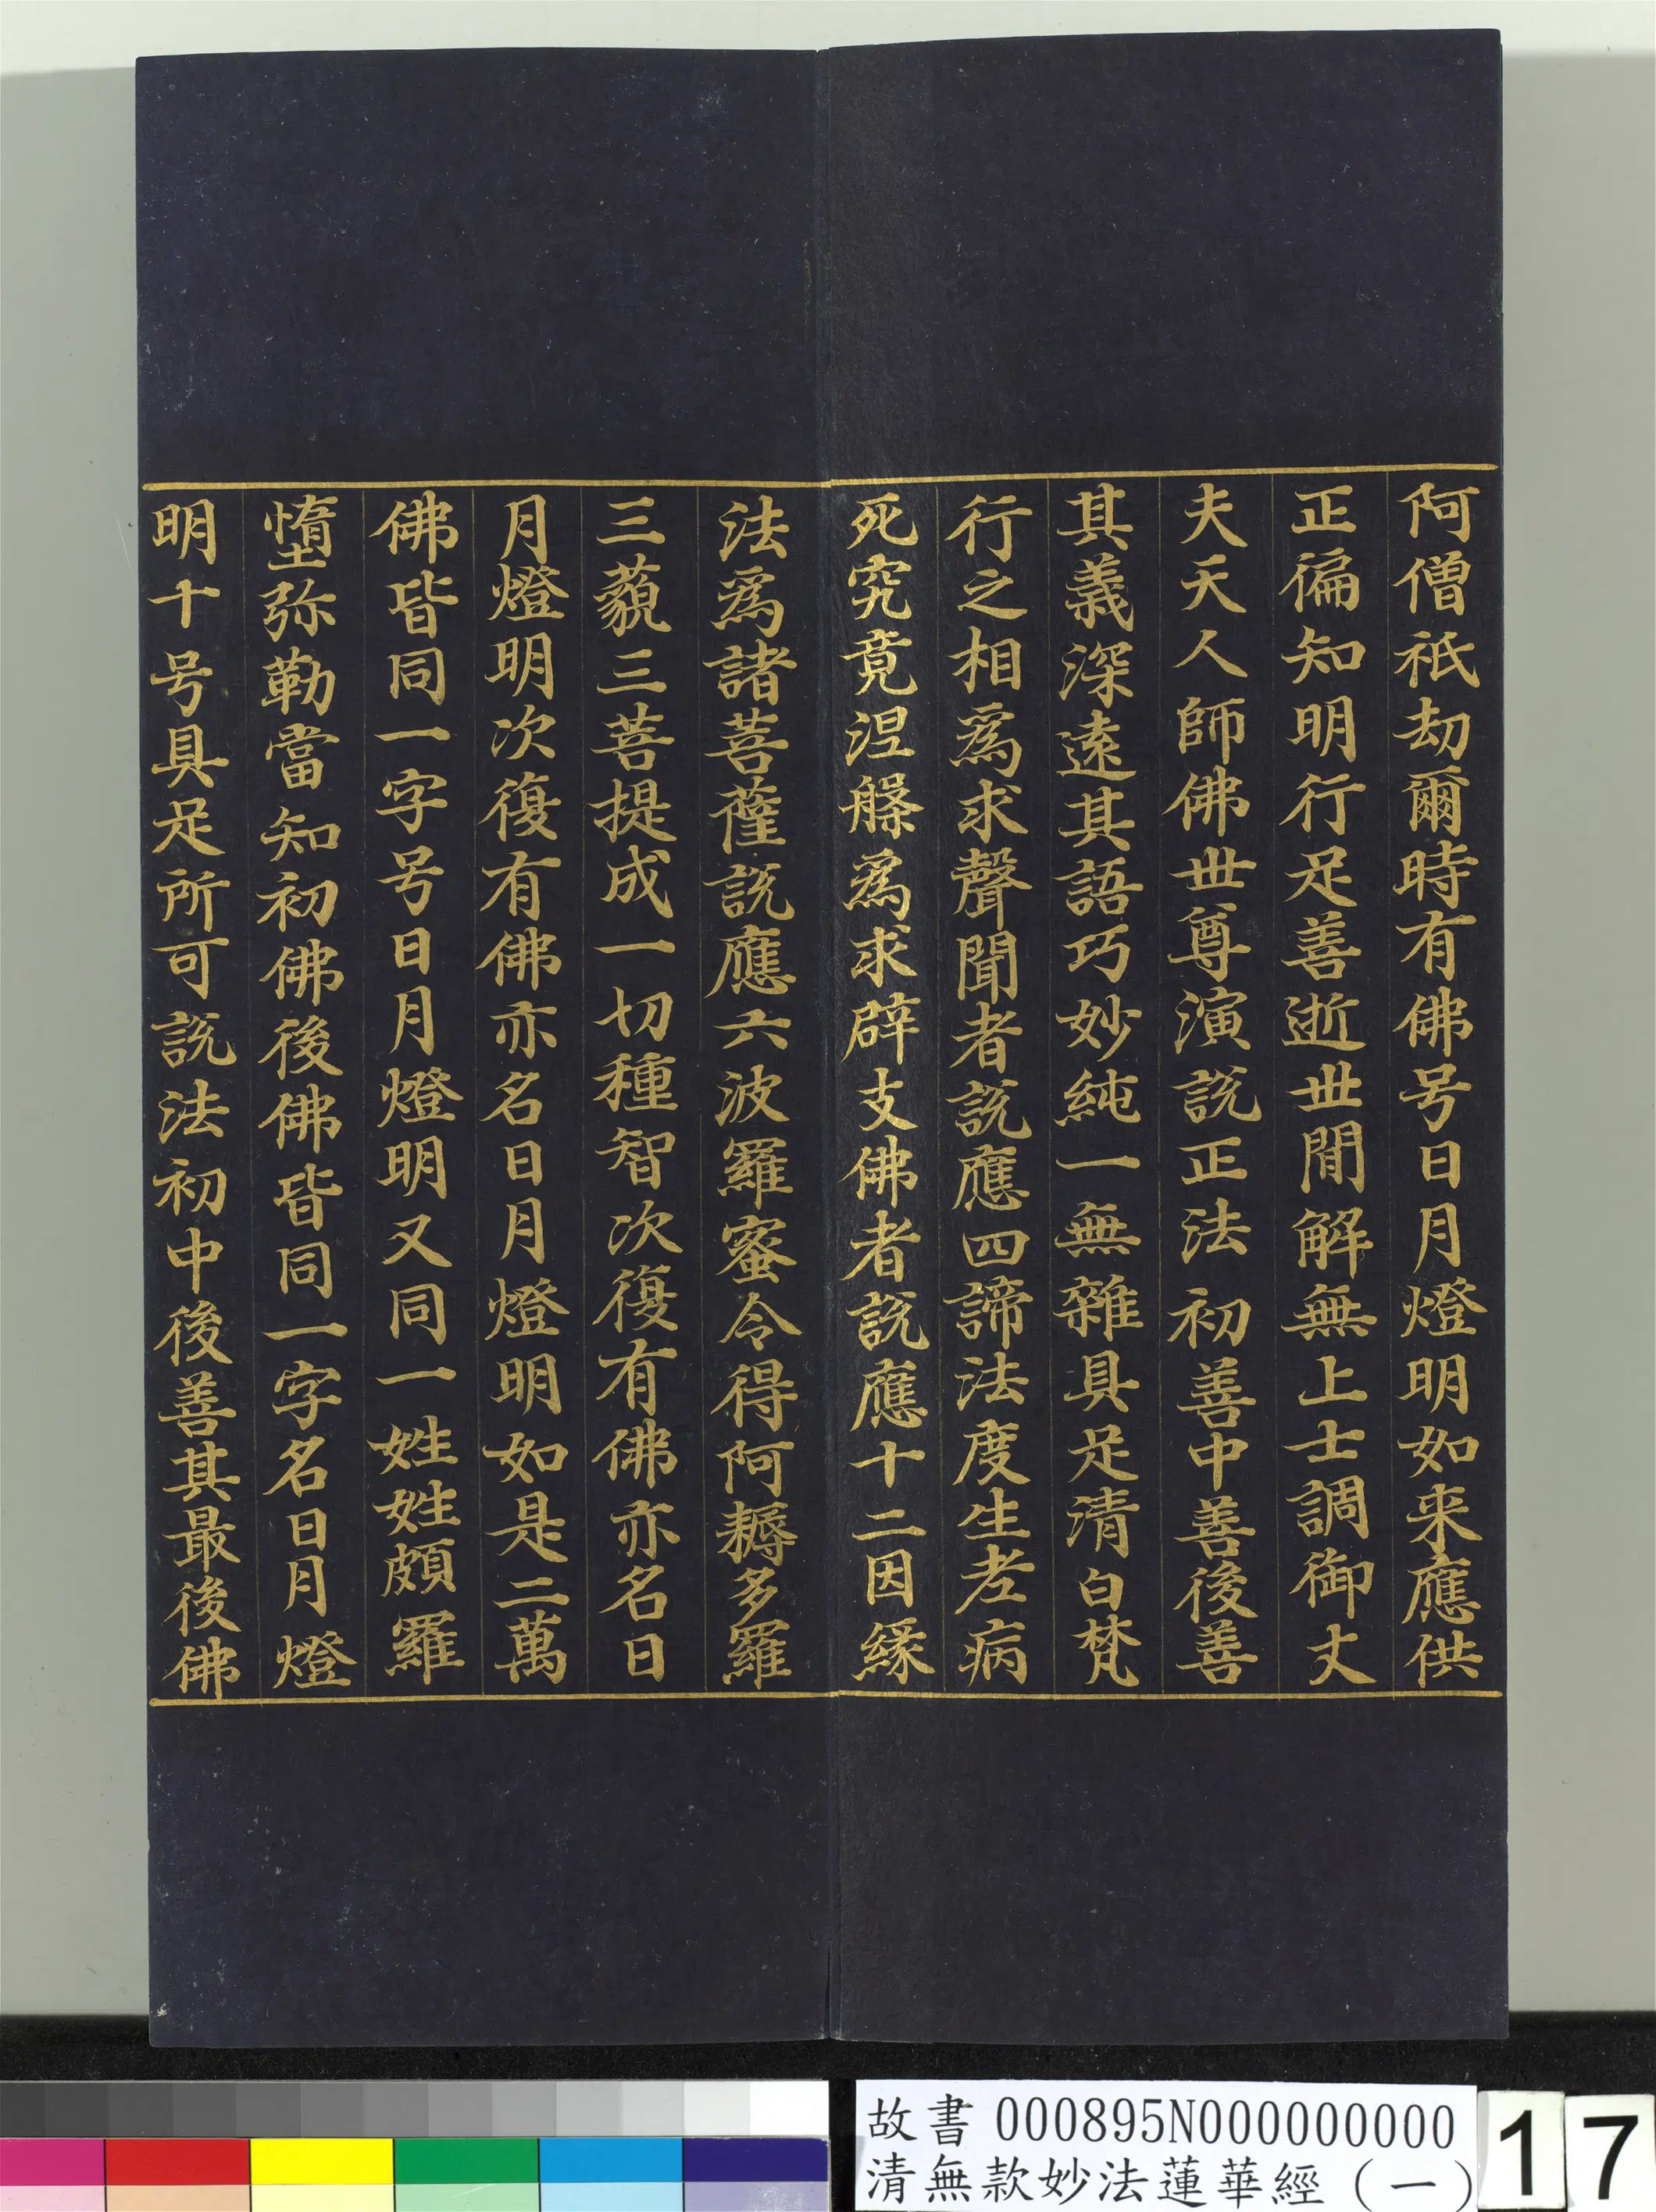 阿僧祇劫爾時有佛号日月燈明如来應供
正徧知明行足善逝世間解無上士調御丈
夫天人師佛世尊演說正法初善中善後善
其義深遠其語巧妙純一無雜具足清白梵
行之相為求聲聞者說應四諦法度生老病
死究竟涅槃為求辟支佛者說應十二因緣
法為諸菩薩說應六波羅蜜令得阿耨多羅
三藐三菩提成一切種智次復有佛亦名日
月燈明次復有佛亦名日月燈明如是二萬
佛皆同一字号日月燈明又同一姓姓頗羅
墮弥勒當知初佛後佛皆同一字名日月燈
明十号具足所可說法初中後善其最後佛
故書 000895N000000000
清無款妙法蓮華經（一）
17